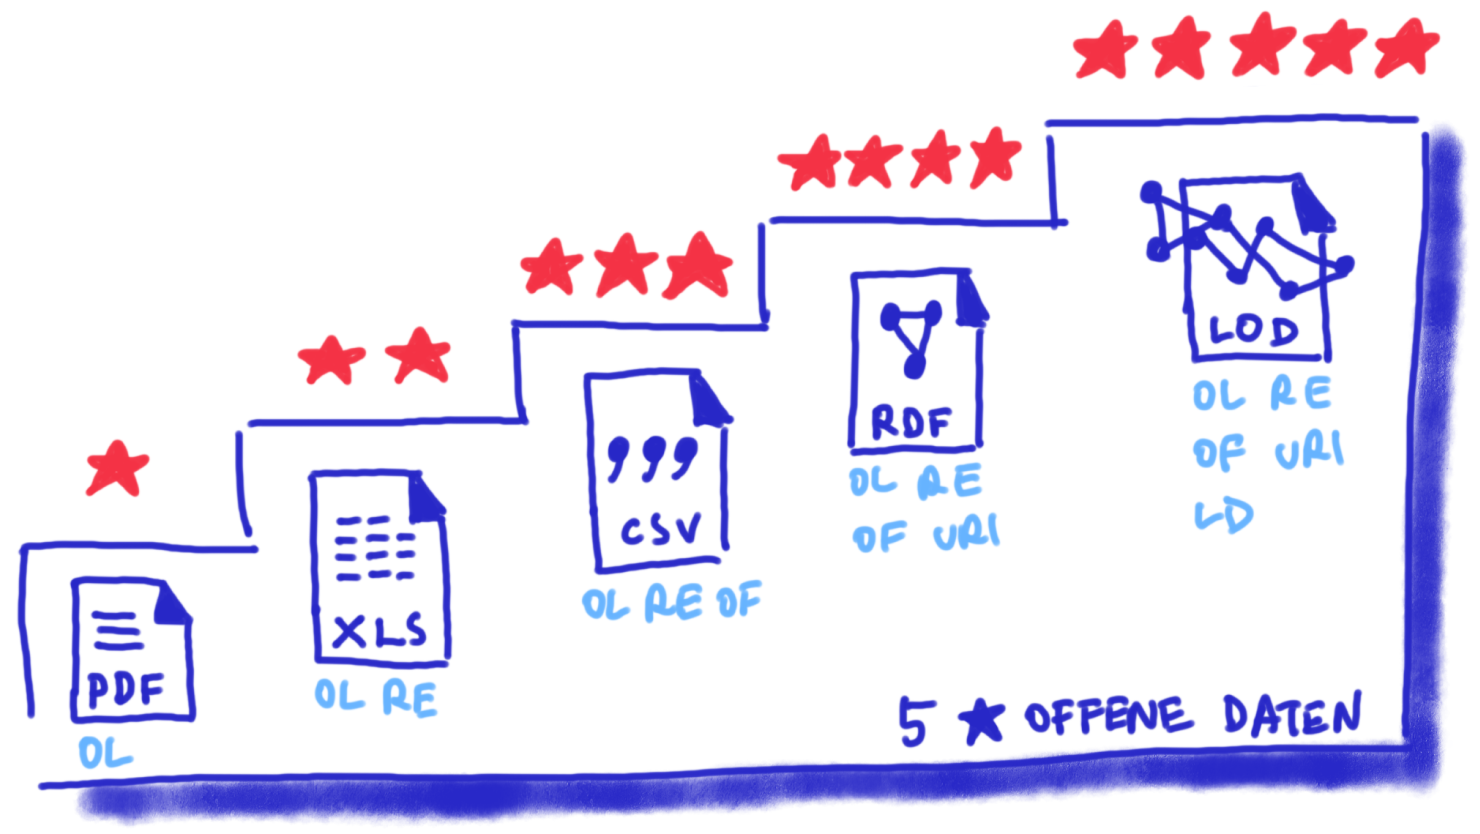 PDF
OL
XLS
OL RE
,,,
CSV
OL RE OF
RDF
OL RE
OF URI
LOD
OL RE
OF URI
LD
5 ★ OFFENE DATEN